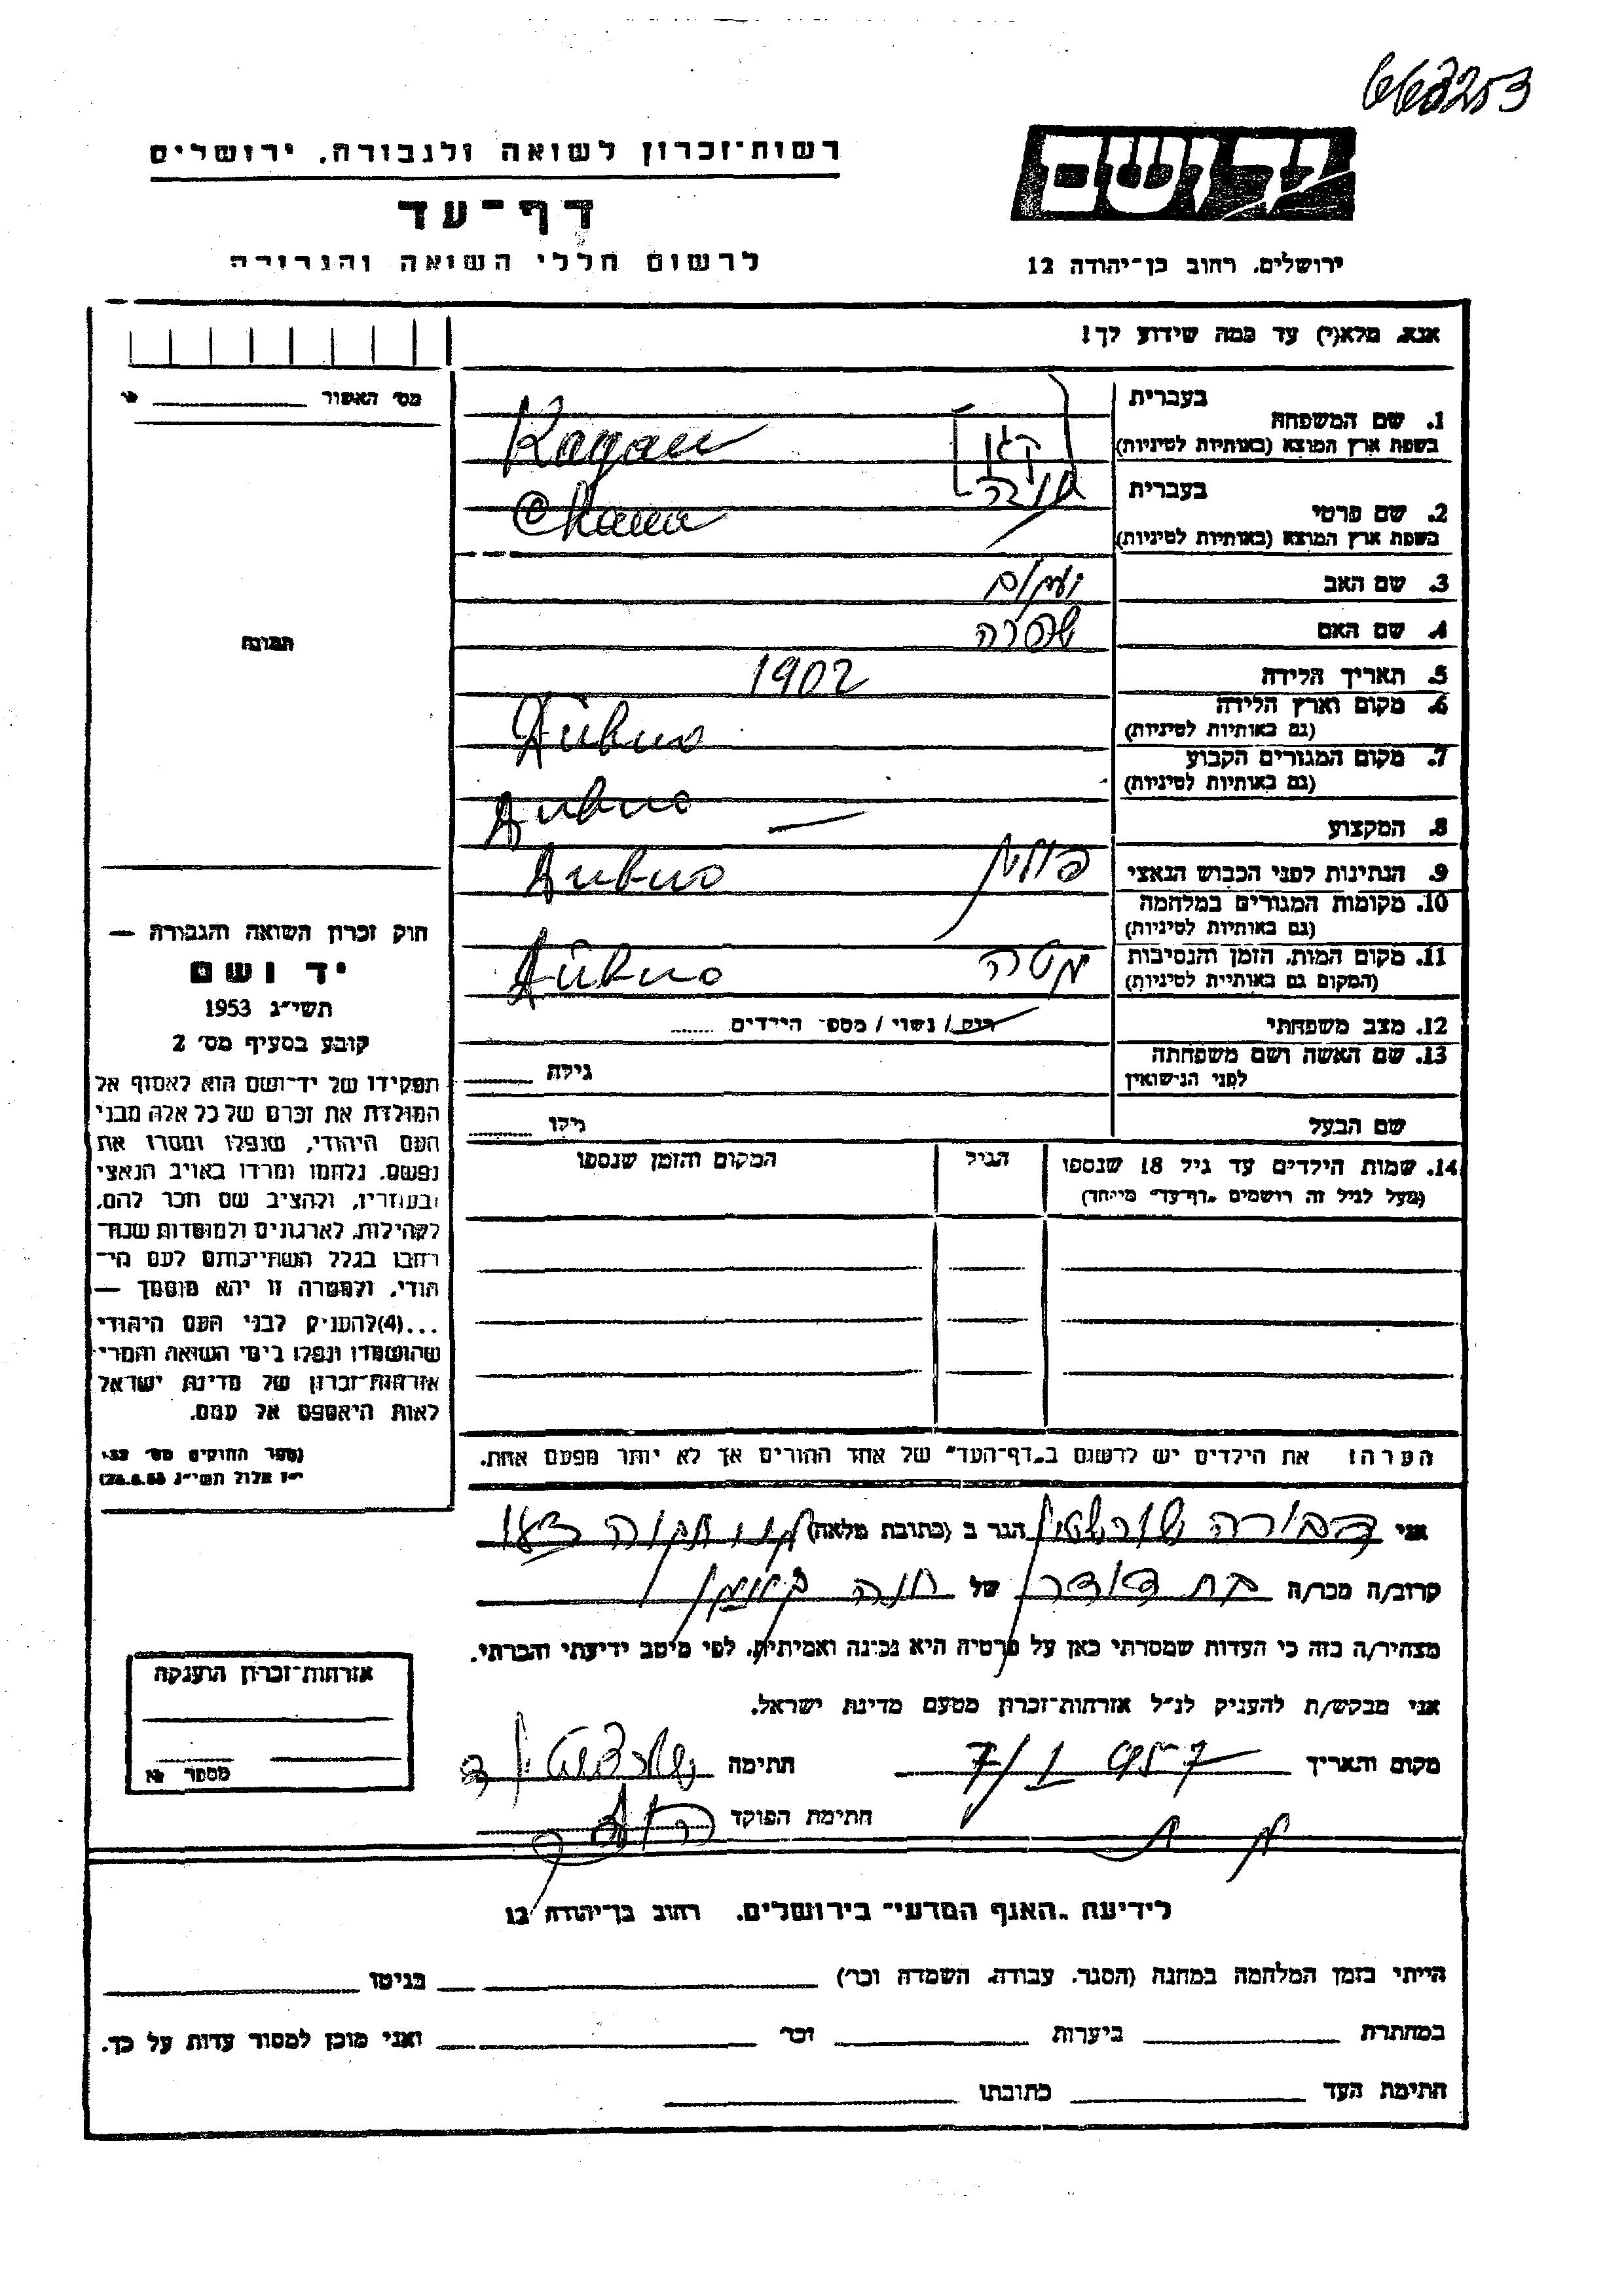 663253
רשות־זכרון לשואה ולגבורה, ירושלים
יד ושם
דף־עד
לרשום חללי השואה והגבורה
ירושלים, רחוב בן־יהודה 12
אנא, מלא(י) עד כמה שידוע לך!
מס׳ האשור
1. שם המשפחה
בעברית
קגן
בשפת ארץ המוצא (באותיות לטיניות)
Kagan
2. שם פרטי
בעברית
חנה
בשפת ארץ המוצא (באותיות לטיניות)
Chana
3. שם האב
4. שם האם שפרה
5. תאריך הלידה 1902
6. מקום וארץ הלידה
(גם באותיות לטיניות)
Dubno
7. מקום המגורים הקבוע
(גם באותיות לטיניות)
Dubno
8. המקצוע —
9. הנתינות לפני הכבוש הנאצי
Dubno
10. מקומות המגורים במלחמה
(גם באותיות לטיניות)
11. מקום המות, הזמן והנסיבות
(המקום גם באותיות לטיניות)
Dubno
12. מצב משפחתי
רוק / נשוי / מספ׳ הילדים
13. שם האשה ושם משפחתה
לפני הנישואין
גילה
שם הבעל
גילו
14. שמות הילדים עד גיל 18 שנספו
(מעל לגיל זה רושמים „דף־עד״ מיוחד)
הגיל
המקום והזמן שנספו
הערה! את הילדים יש לרשום ב„דף־העד״ של אחד ההורים אך לא יותר מפעם אחת.
תמונה
חוק זכרון השואה והגבורה —
יד ושם
תשי״ג 1953
קובע בסעיף מס׳ 2
תפקידו של יד־ושם הוא לאסוף אל
המולדת את זכרם של כל אלה מבני
העם היהודי, שנפלו ומסרו את
נפשם, נלחמו ומרדו באויב הנאצי
ובעוזריו, ולהציב שם וזכר להם,
לקהילות, לארגונים ולמוסדות שנח־
רבו בגלל השתייכותם לעם הי־
הודי, ולמטרה זו יהא מוסמך —
...(4)להעניק לבני העם היהודי
שהושמדו ונפלו בימי השואה והמרי
אזרחות־זכרון של מדינת ישראל
לאות היאספם אל עמם.
(ספר החוקים מס׳ 132,
י״ז אלול תשי״ג 28.8.53)
אני דבורה הגר ב (כתובת מלאה)
קרוב/ה מכר/ה בת דודה של חנה
מצהיר/ה בזה כי העדות שמסרתי כאן על פרטיה היא נכונה ואמיתית, לפי מיטב ידיעתי והכרתי.
אני מבקש/ת להעניק לנ״ל אזרחות־זכרון מטעם מדינת ישראל.
מקום ותאריך 7/I 957 חתימה
חתימת הפוקד
אזרחות־זכרון הוענקה
מספר
לידיעת „האגף המדעי״ בירושלים, רחוב בן־יהודה 12
הייתי בזמן המלחמה במחנה (הסגר, עבודה, השמדה וכו׳) בגיטו
במחתרת ביערות וכו׳ ואני מוכן למסור עדות על כך.
חתימת העד כתובתו